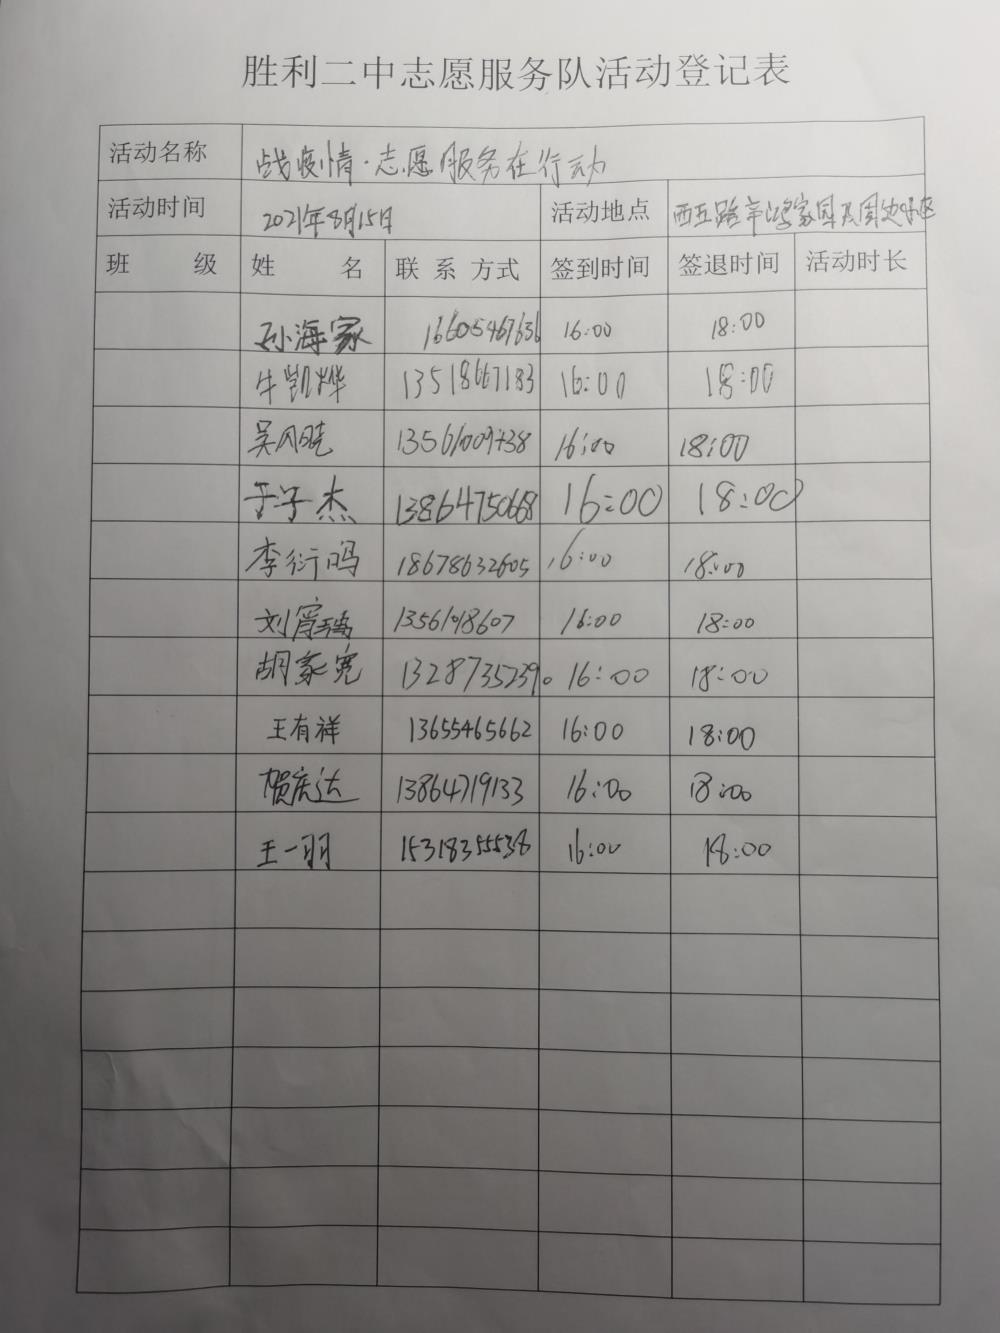 胜利二中志愿服务队活动登记表
活动名称 战疫情·志愿服务在行动
活动时间 2021年8月15日 活动地点 西五路 家园及周边小区
班 级 姓 名 联系方式 签到时间 签退时间 活动时长
孙海家 16605467636 16:00 18:00
牛凯烨 13518667183 16:00 18:00
吴风晓 16:00 18:00
于子杰 13864750668 16:00 18:00
李衍鸣 18678632605 16:00 18:00
刘霄瑀 16:00 18:00
胡家宽 16:00 18:00
王有祥 13655465662 16:00 18:00
贺庆达 13864719133 16:00 18:00
王一羽 15318355538 16:00 18:00